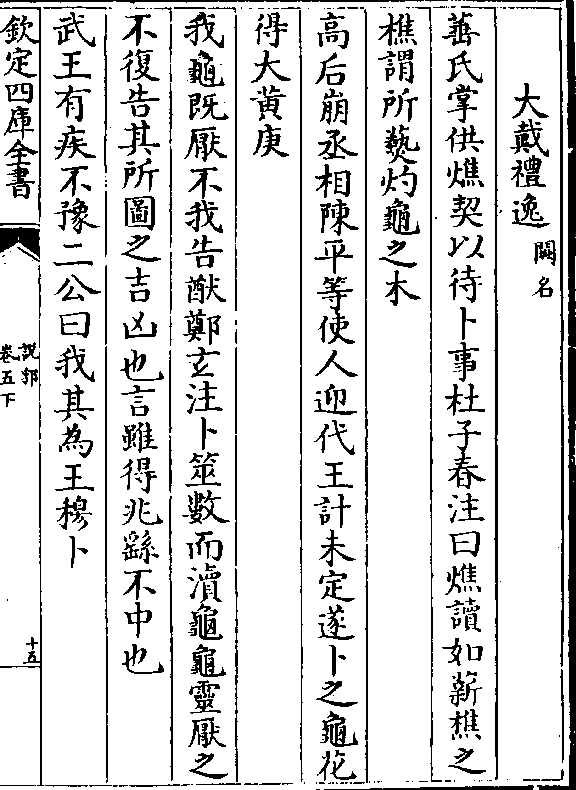 大戴禮逸 闕名
菙氏掌供燋契以待卜事杜子春注曰燋讀如薪樵之
樵謂所爇灼龜之木
高后崩丞相陳平等使人迎代王計未定遂卜之龜花
得大黃庚
我龜既厭不我告猷鄭玄注卜筮數而瀆龜龜靈厭之
不復告其所圖之吉凶也言雖得兆繇不中也
武王有疾不豫二公曰我其為王穆卜
欽定四庫全書
說郛
卷五下
十五